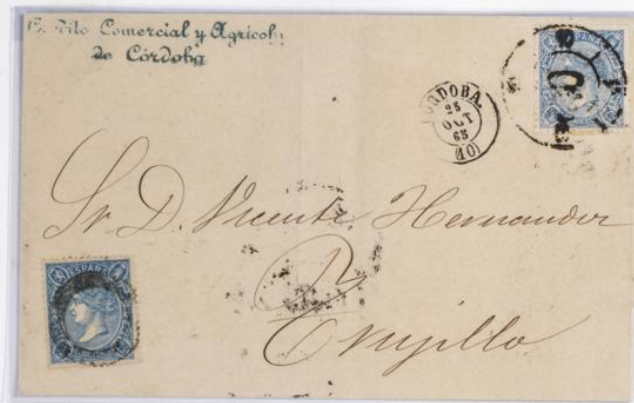 Crédito Comercial y Agrícola
de Córdoba
CORDOBA.
25
OCT
65
(10)
ESPAÑA
Sr. D. Vicente Hernandez
Trujillo
ESPAÑA